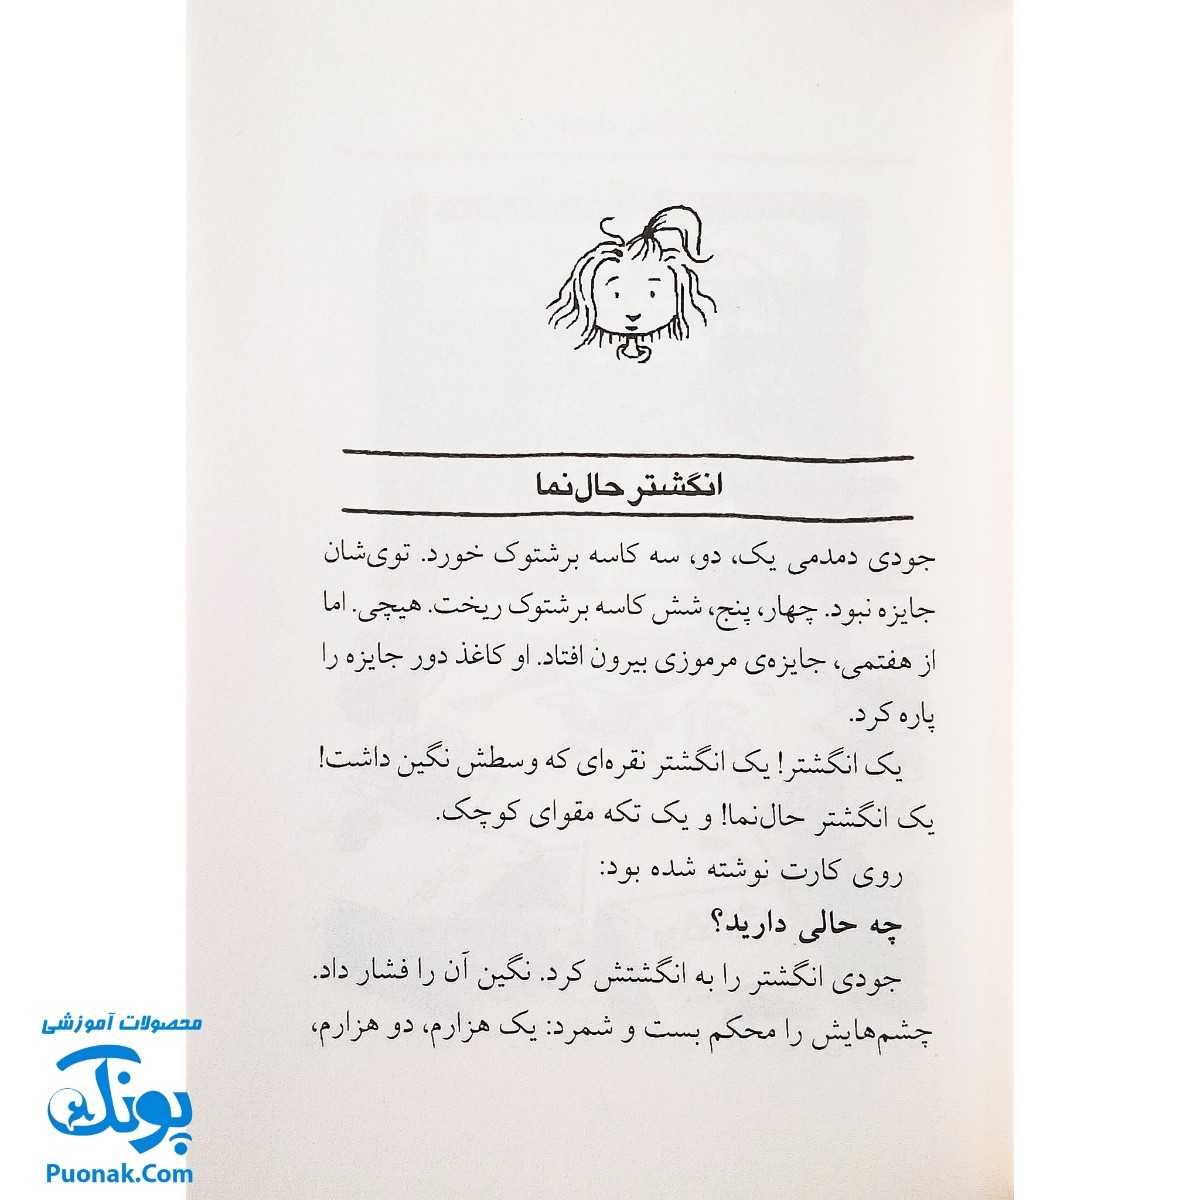 انگشتر حال‌نما
جودی دمدمی یک، دو، سه کاسه برشتوک خورد. توی‌شان
جایزه نبود. چهار، پنج، شش کاسه برشتوک ریخت. هیچی. اما
از هفتمی، جایزه‌ی مرموزی بیرون افتاد. او کاغذ دور جایزه را
پاره کرد.
یک انگشتر! یک انگشتر نقره‌ای که وسطش نگین داشت!
یک انگشتر حال‌نما! و یک تکه مقوای کوچک.
روی کارت نوشته شده بود:
چه حالی دارید؟
جودی انگشتر را به انگشتش کرد. نگین آن را فشار داد.
چشم‌هایش را محکم بست و شمرد: یک هزارم، دو هزارم،
محصولات آموزشی
پونک
Puonak.Com